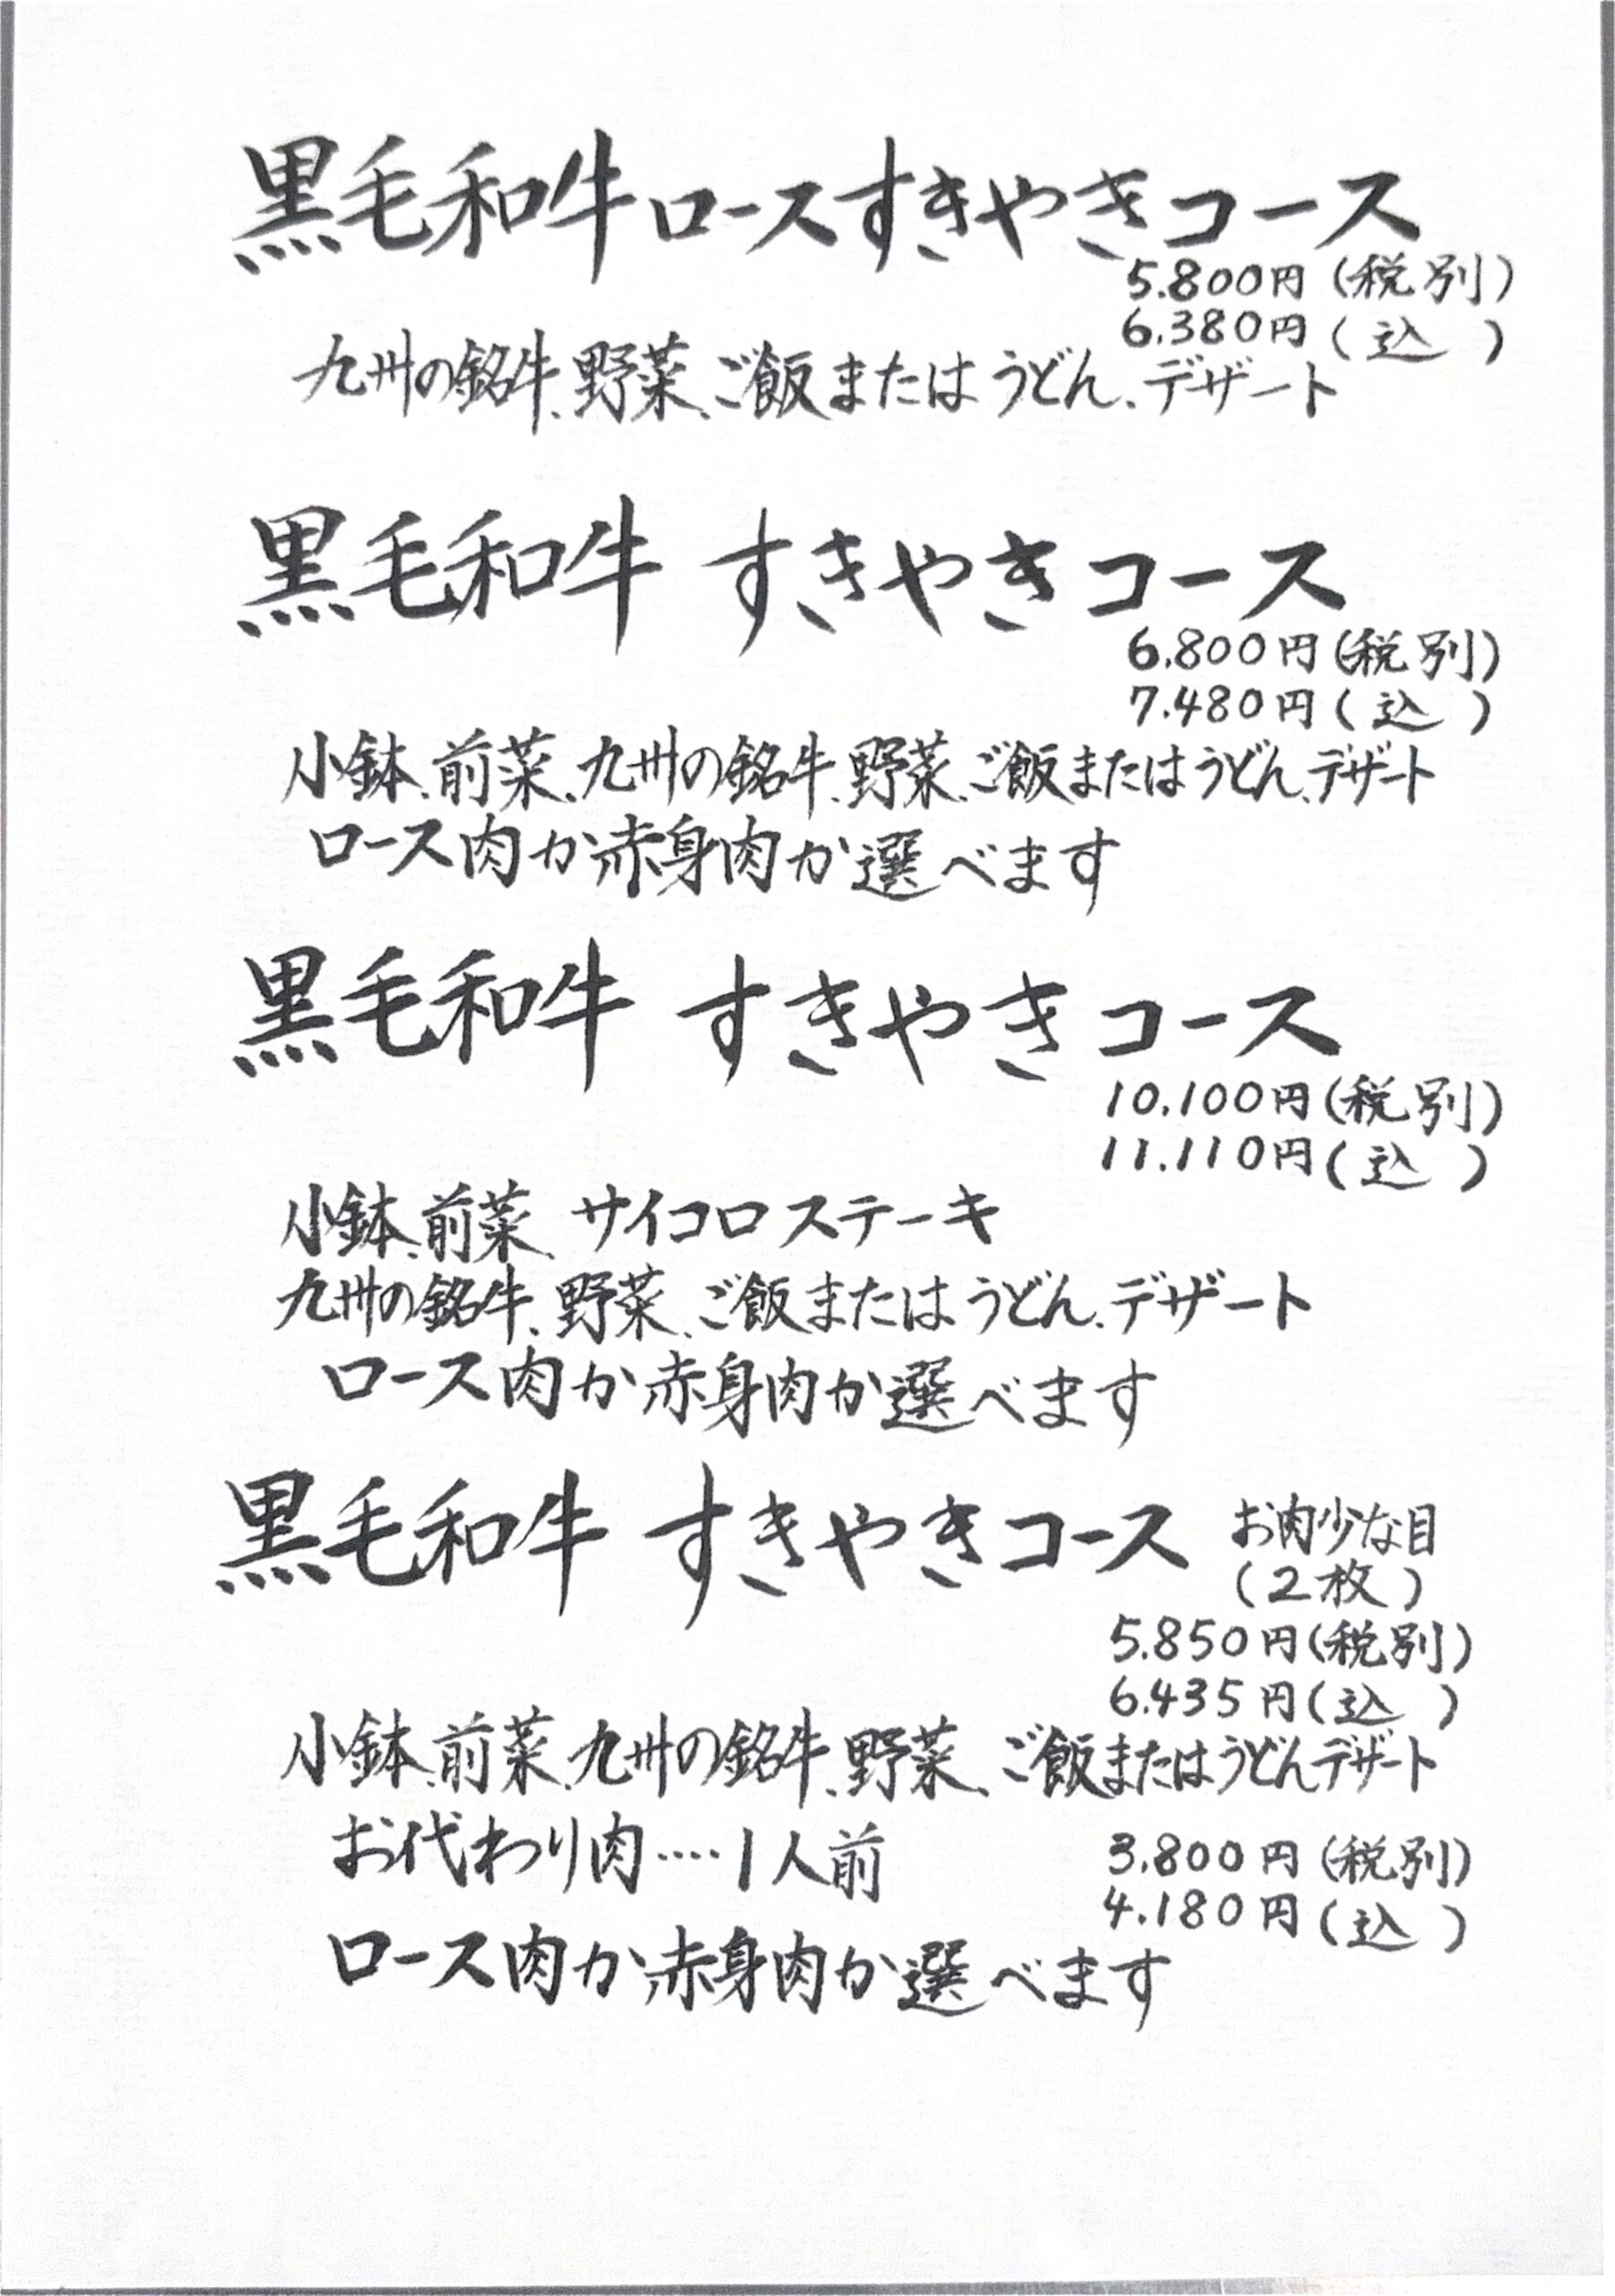 黒毛和牛ロースすきやきコース
5.800円(税別)
6.380円(込)
九州の銘牛、野菜、ご飯またはうどん、デザート
黒毛和牛 すきやきコース
6.800円(税別)
7.480円(込)
小鉢、前菜、九州の銘牛、野菜、ご飯またはうどん、デザート
ロース肉か赤身肉か選べます
黒毛和牛 すきやきコース
10.100円(税別)
11.110円(込)
小鉢、前菜、サイコロステーキ
九州の銘牛、野菜、ご飯またはうどん、デザート
ロース肉か赤身肉か選べます
黒毛和牛 すきやきコース お肉少な目
(2枚)
5.850円(税別)
6.435円(込)
小鉢、前菜、九州の銘牛、野菜、ご飯またはうどんデザート
お代わり肉‥‥1人前 3.800円(税別)
4.180円(込)
ロース肉か赤身肉か選べます